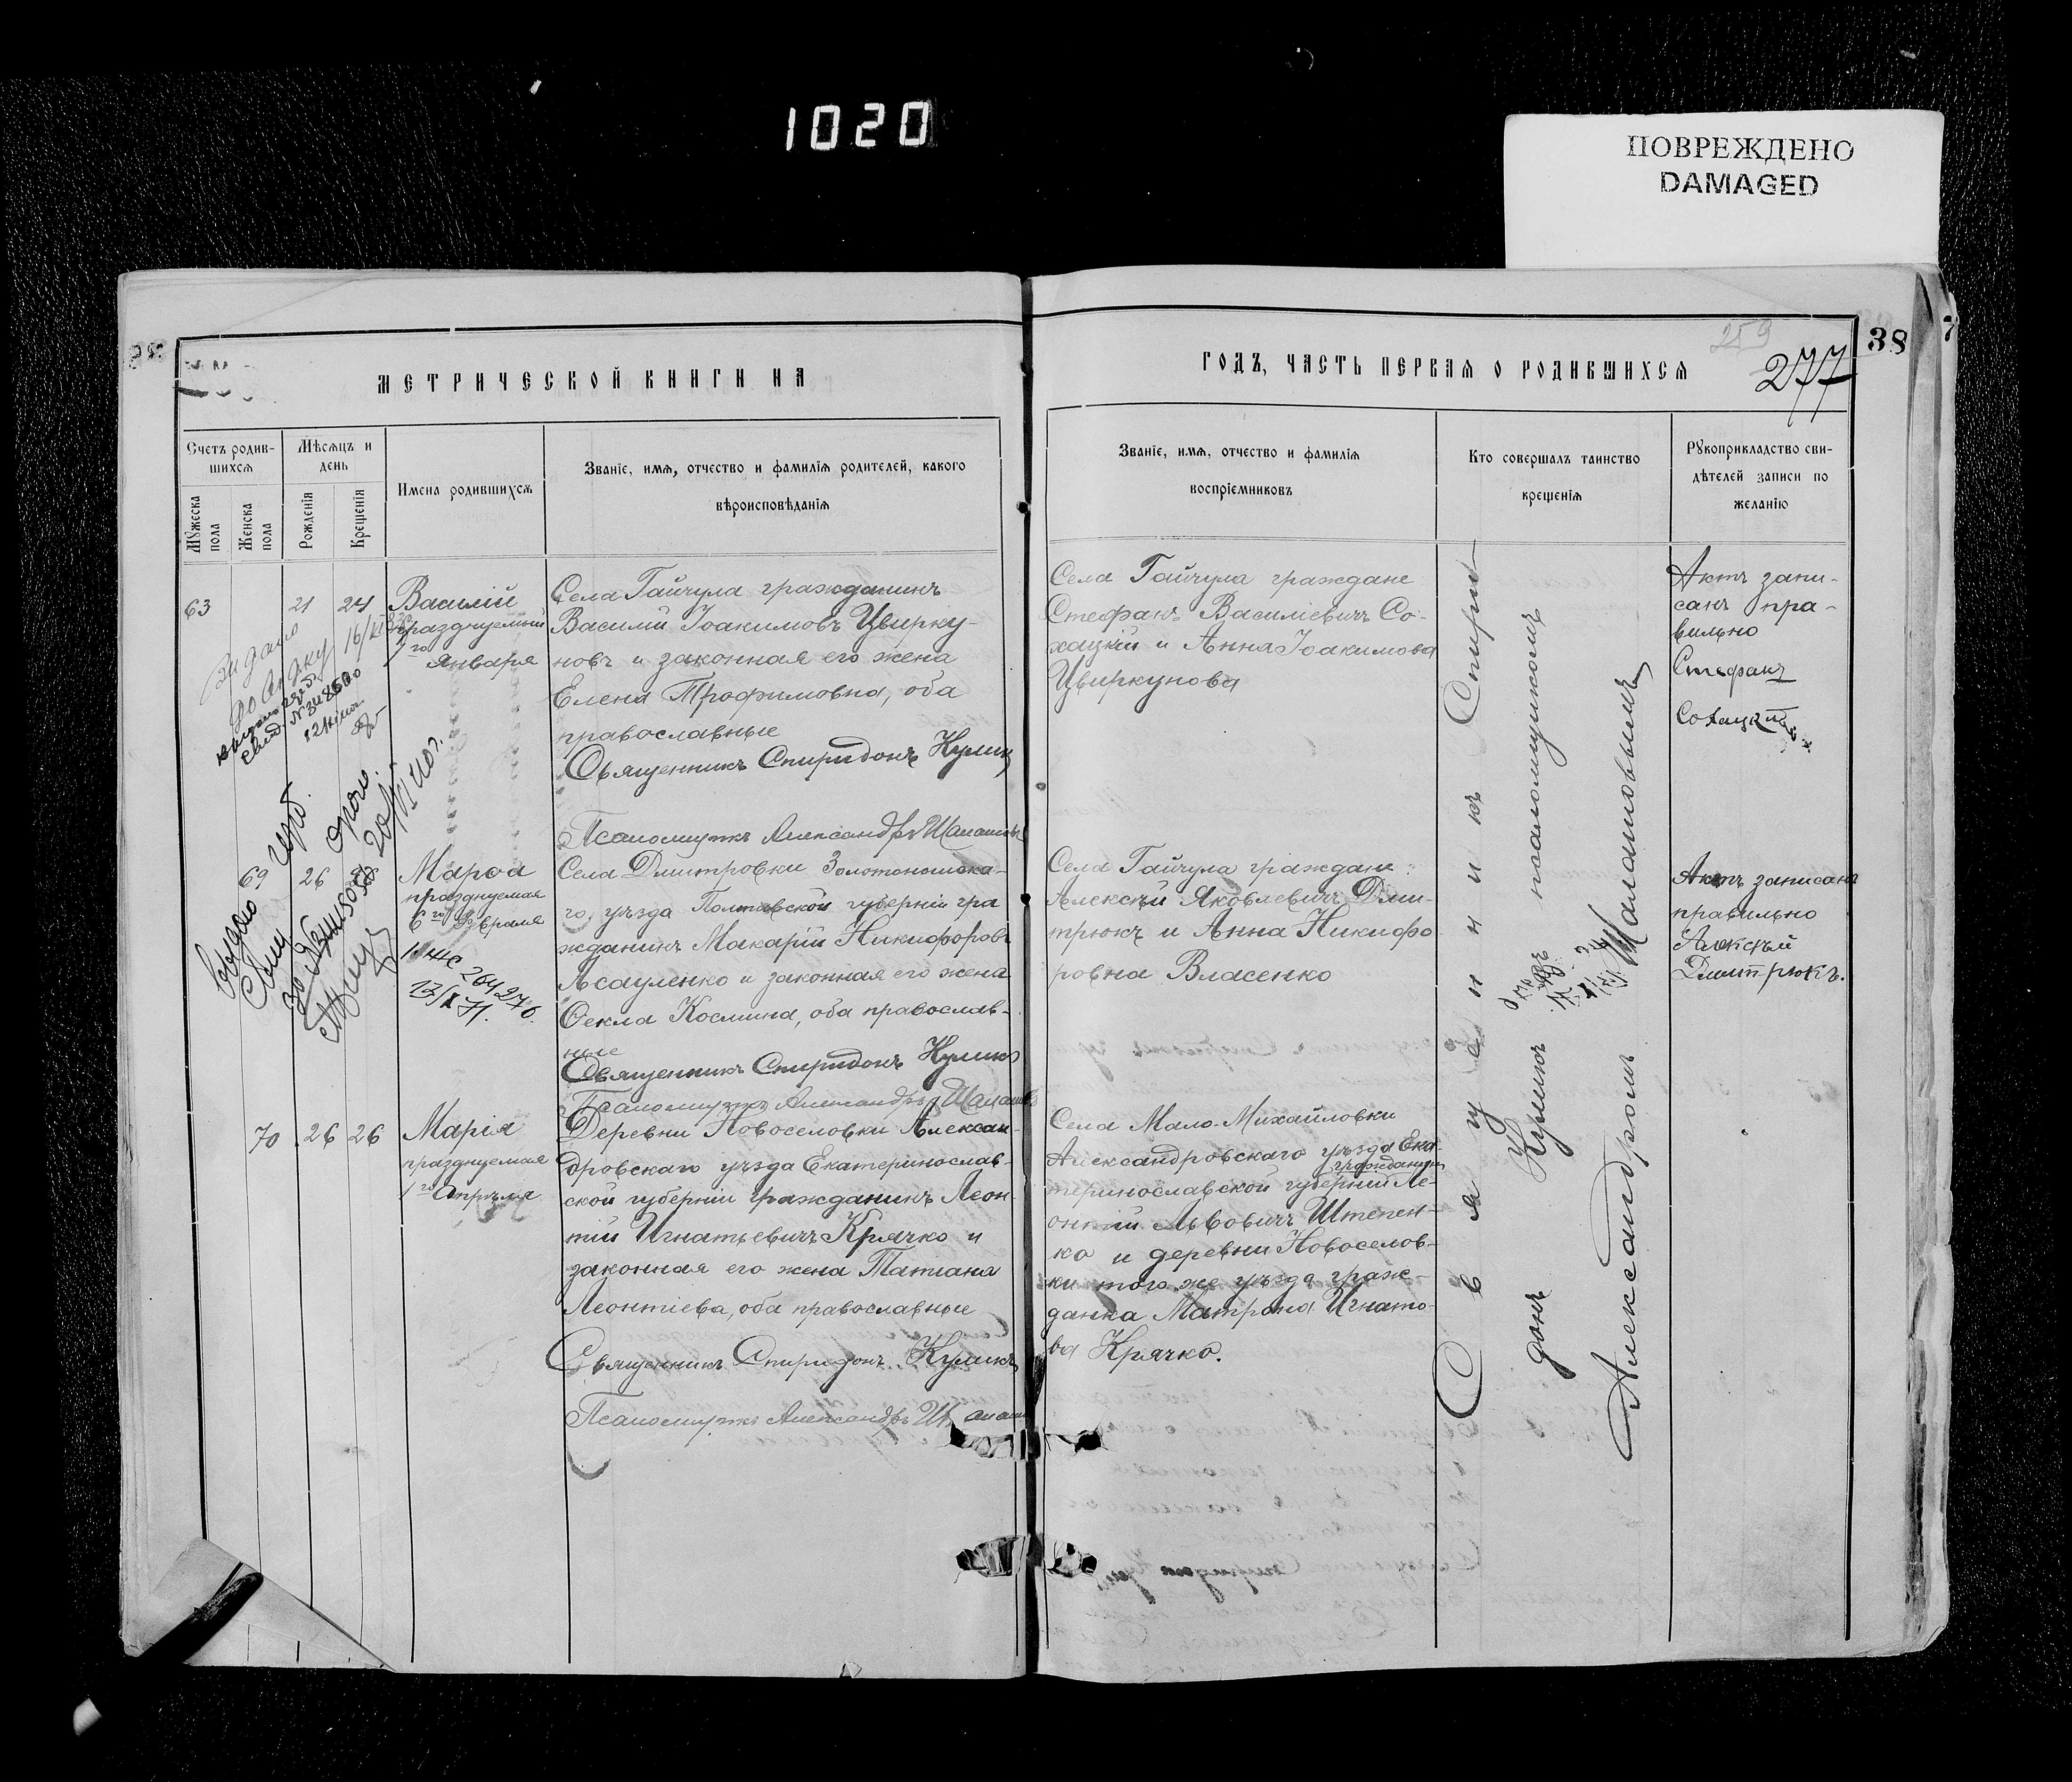 1020
ПОВРЕЖДЕНО
DAMAGED
259
277
38
МЕТРИЧЕСКОЙ КНИГИ НА
ГОДЪ, ЧАСТЬ ПЕРВАЯ О РОДИВШИХСЯ
Счетъ родив-
шихся
Мѣсяцъ и
день
Мужеска
пола
Женска
пола
Рожденія
Крещенія
Имена родившихся
Званіе, имя, отчество и фамилія родителей, какого
вѣроисповѣданія
Званіе, имя, отчество и фамилія
воспріемниковъ
Кто совершалъ таинство
крещенія
Рукоприкладство сви-
дѣтелей записи по
желанію
63
21
24
Василій
празднуемый
1го
Января
Села Гайчула гражданинъ
Василій Іоакимовъ Цвирку-
новъ и законная его жена
Елена Трофимовна, оба
православные
Священникъ Спиридонъ Куликъ
Псаломщикъ Александръ
Села Гайчула граждане
Стефанъ Василіевичъ Со-
хацкій и Анна Іоакимова
Цвиркунова
Актъ запи-
санъ пра-
вильно
Стефанъ
Сохацкій
69
26
Марѳа
празднуемая
6го Февраля
264276
Села Дмитровки Золотоношска-
го, уѣзда Полтавской губерніи гра
жданинъ Макарій Никифоровъ
Асауленко и законная его жена
Ѳекла Космина, оба православ-
ные
Священникъ Спиридонъ Куликъ
Псаломщикъ Александръ
Села Гайчула граждане:
Алексѣй Яковлевичъ Дми-
трюкъ и Анна Никифо
ровна Власенко
Актъ записанъ
правильно
Алексѣй
Дмитрюкъ.
70
26
26
Марія
празднуемая
1го Апрѣля
Деревни Новоселовки Алексан-
дровскаго уѣзда Екатеринослав-
ской губерніи гражданинъ Леон-
тій Игнатьевичъ Крячко и
законная его жена Татіана
Леонтіева, оба православные
Священникъ Спиридонъ Куликъ
Псаломщикъ Александръ
Села Мало-Михайловки
Александровскаго уѣзда Ека-
гражданинъ
теринославской губерніи Ле-
онтій Львовичъ Штепен-
ко и деревни Новоселов-
ки того же уѣзда граж-
данка Матрона Игнато-
ва Крячко.
Священникъ Спири
донъ Куликъ съ псаломщикомъ
Александромъ